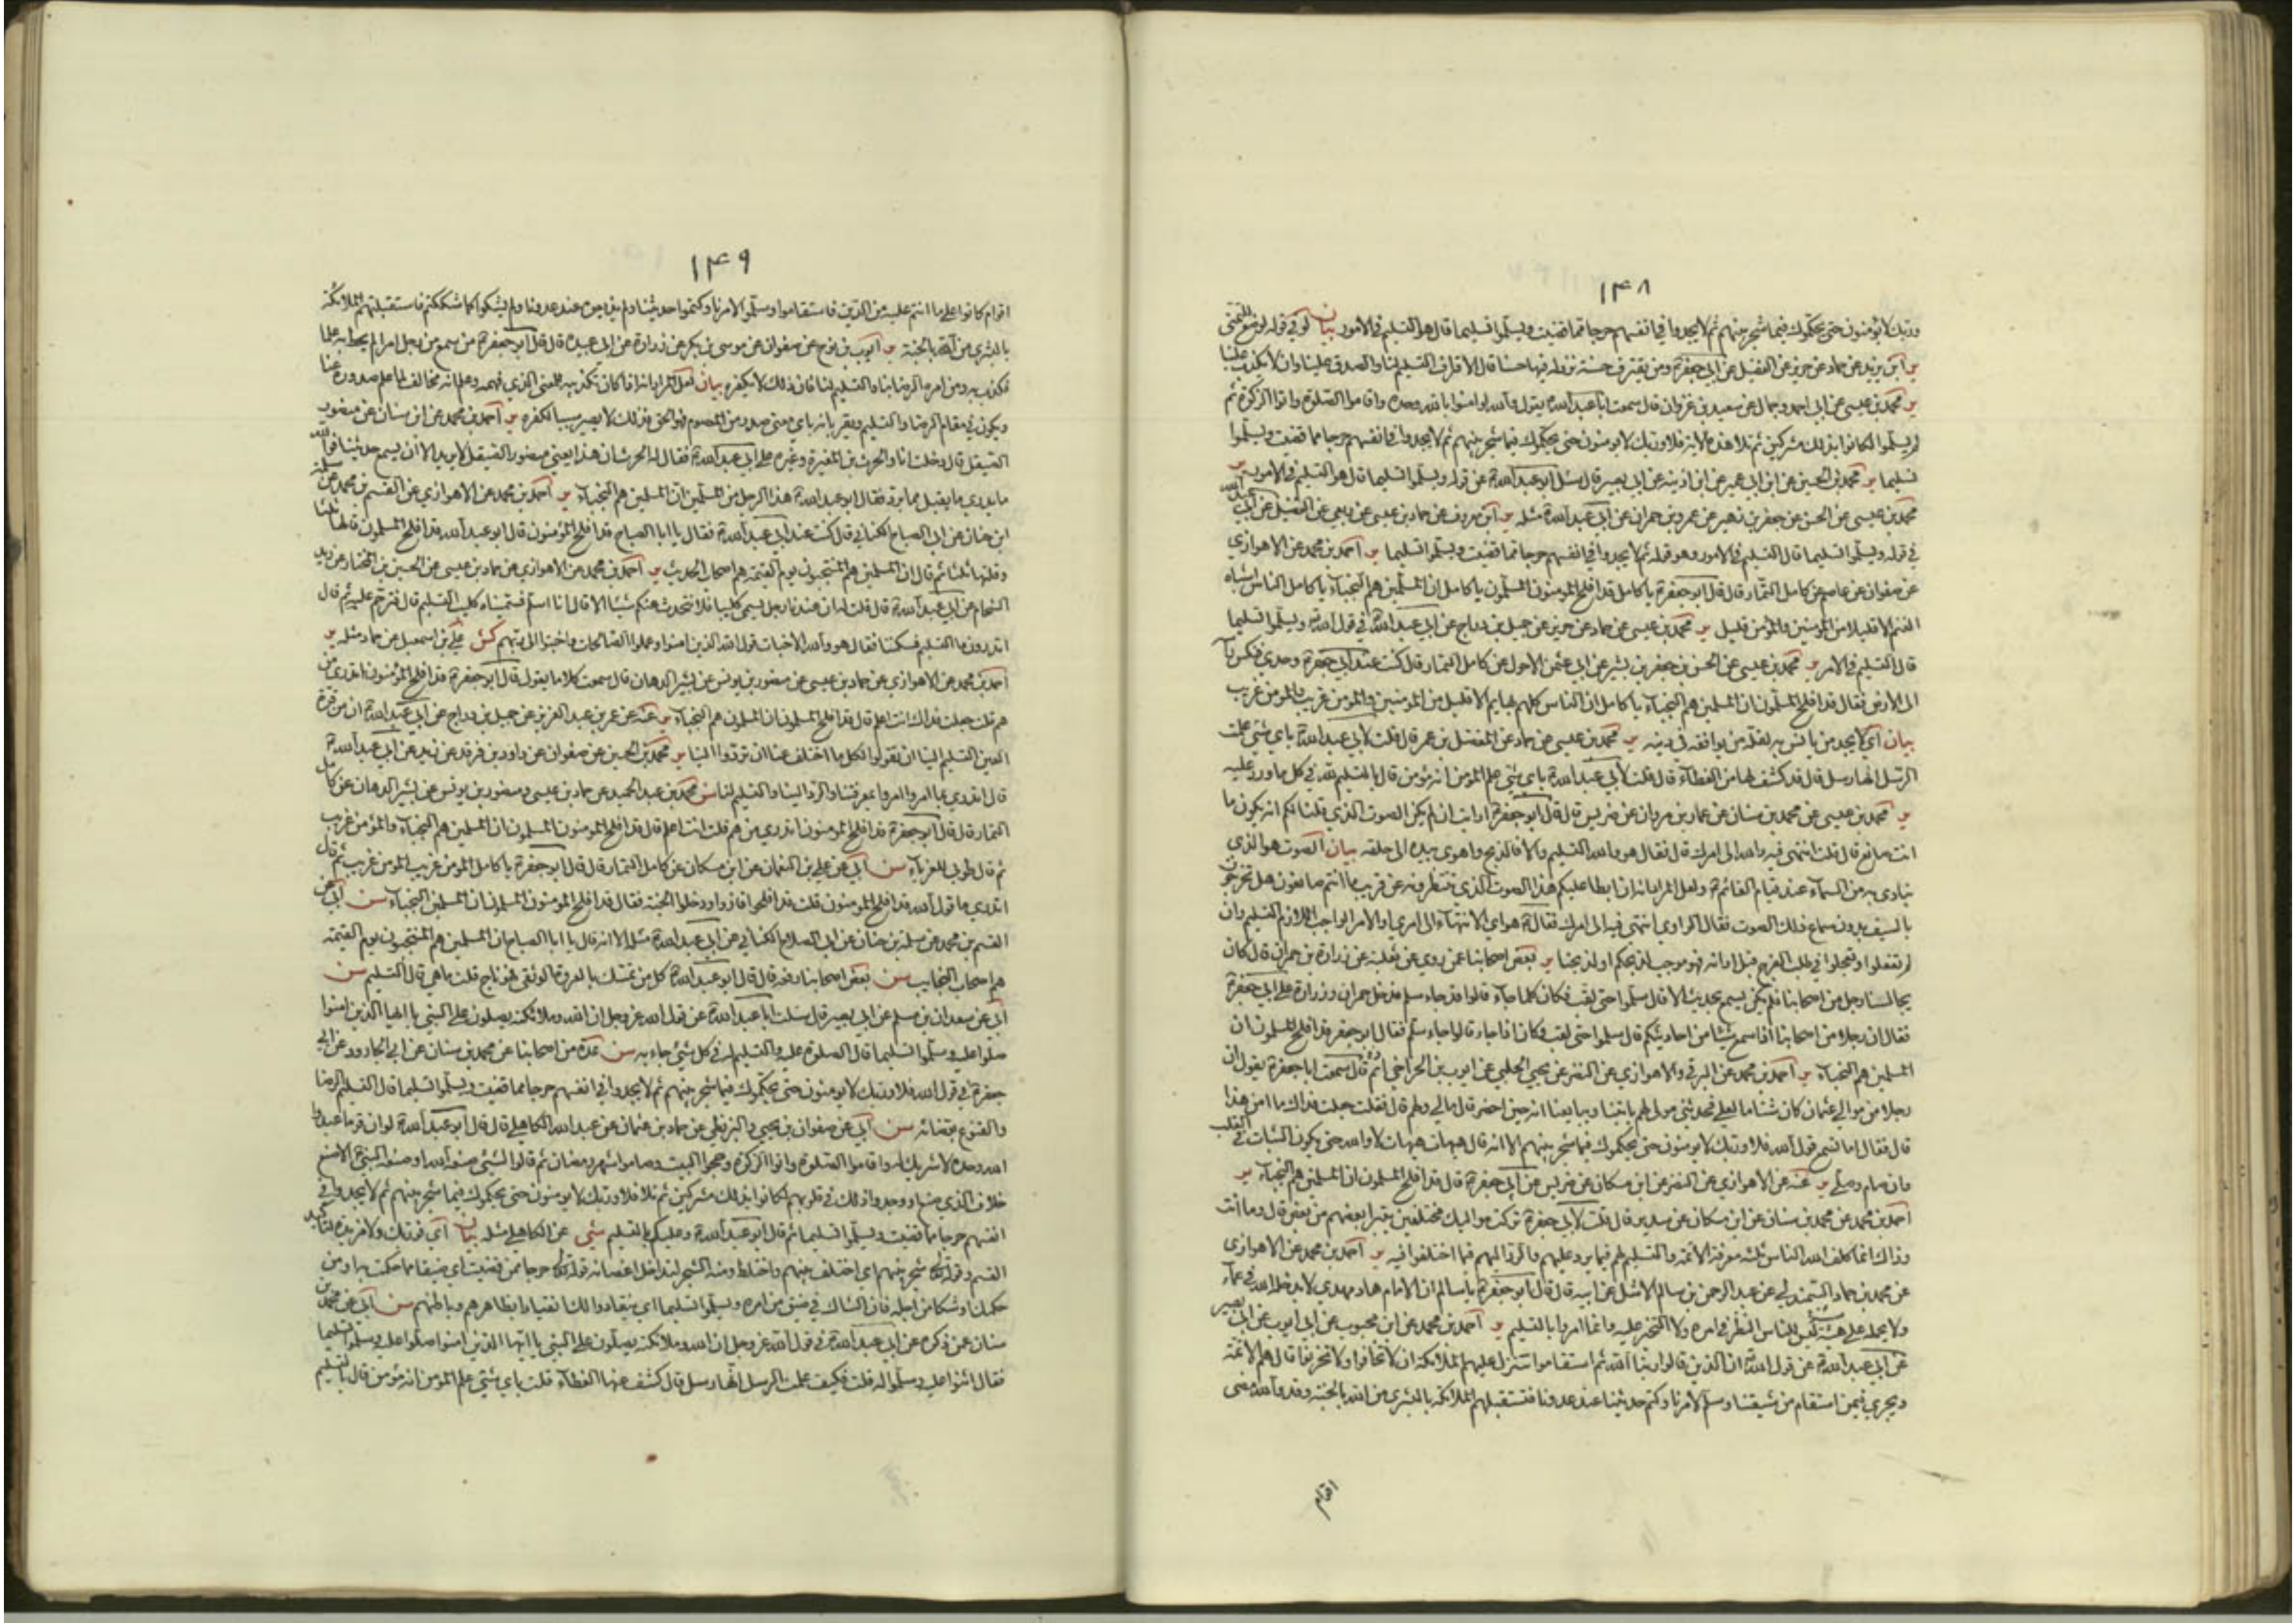 ١۴٨
وربك لا يؤمنون حتى يحكموك فيما شجر بينهم ثم لا يجدوا في انفسهم حرجا مما قضيت ويسلموا تسليما قال هو التسليم في الامور بيان لو في قوله لو صنع للتمنى
ير ابن يزيد عن حماد عن حريز عن الفضيل عن ابي جعفر ع ومن يقترف حسنة نزد له فيها حسنا قال الاقتراف التسليم لنا والصدق علينا وان لا يكذب علينا
ير محمد بن عيسى عن ابي احمد وجمال عن سعيد بن غزوان قال سمعت ابا عبد الله ع يقول والله لو امنوا بالله وحده واقاموا الصلوة واتوا الزكوة ثم
لم يسلموا لكانوا بذلك مشركين ثم تلا هذه الاية فلا وربك لا يؤمنون حتى يحكموك فيما شجر بينهم ثم لا يجدوا في انفسهم حرجا مما قضيت ويسلموا
تسليما ير محمد بن الحسين عن ابن ابي عمير عن ابن اذينة عن ابي بصير قال سئل ابو عبد الله ع عن قوله ويسلموا تسليما قال هو التسليم في الامور ير
محمد بن عيسى عن الحسن عن جعفر بن زهير عن عمرو بن حمران عن ابي عبد الله ع مثله ير ابن معروف عن حماد بن عيسى عن ربعي عن الفضيل عن ابي عبد الله
في قوله ويسلموا تسليما قال التسليم في الامور وهو قوله ثم لا يجدوا في انفسهم حرجا مما قضيت ويسلموا تسليما ير احمد بن محمد عن الاهوازي
عن صفوان عن عاصم عن كامل التمار قال قال ابو جعفر ع يا كامل قد افلح المؤمنون المسلمون يا كامل ان المسلمين هم النجباء يا كامل الناس اشباه
الغنم الا قليلا من المؤمنين والمؤمن قليل ير محمد بن عيسى عن حماد عن حريز عن جميل بن دراج عن ابي عبد الله ع في قول الله ويسلموا تسليما
قال التسليم في الامر ير محمد بن عيسى عن الحسن بن جعفر بن بشير عن ابي عثمن الاحول عن كامل التمار قال كنت عند ابي جعفر ع وحدي فنكس رأسه
الى الارض فقال قد افلح المسلمون ان المسلمين هم النجباء يا كامل ان الناس كلهم بهايم الا قليل من المؤمنين والمؤمن غريب والمؤمن غريب
بيان اي لا يجد من يأنس به لقلة من يوافقه في دينه ير محمد بن عيسى عن حماد عن المفضل بن عمر قال قلت لابي عبد الله ع باي شئ علمت
الرسل انها رسل قال قد كشف لها من الغطاء قال قلت لابي عبد الله ع باي شئ علم المؤمن انه مؤمن قال بالتسليم لله في كل ما ورد عليه
ير محمد بن عيسى عن محمد بن سنان عن عمار بن مروان عن ضريس قال قال ابو جعفر ع ارايت ان لم يكن الصوت الذي قلنا لكم انه يكون ما
انت صانع قال قلت انتهى فيه والله الى امرك قال فقال هو والله التسليم والا فالذبح واهوى بيده الى حلقه بيان الصوت هو الذي
ينادى به من السماء عند قيام القائم ع ولعل المراد انه ان ابطا عليكم هذا الصوت الذي تنتظرونه عن قريب ما انتم صانعون هل تخرجون
بالسيف بدون سماع ذلك الصوت فقال الراوي انتهى فيه الى امرك فقال ع هو اي الانتهاء الى امري او الامر الواجب اللازم التسليم وان
لم تفعلوا وتعجلوا في طلب الفرج قبل اوانه فهو موجب لذبحكم او لذبحنا ير بعض اصحابنا عمن روى عن ثعلبة عن زرارة بن حمران قال كان
يجالسنا رجل من اصحابنا فلم يكن يسمع بحديث الا قال سلموا حتى لقب فكان كلما جاء قالوا قد جاء سلم فدخل حمران وزرارة على ابي جعفر ع
فقال ان رجلا من اصحابنا اذا سمع شيئا من احاديثكم قال سلموا حتى لقب وكان اذا جاء قالوا جاء سلم فقال ابو جعفر قد افلح المسلمون ان
المسلمين هم النجباء ير احمد بن محمد عن البرقي والاهوازي عن النضر عن يحيى الحلبي عن ايوب بن الحر اخي اديم قال سمعت ابا جعفر ع يقول ان
رجلا من موالي عثمان كان شتاما لعلي فحدثني مولى لهم يأتينا ويبايعنا انه حين احضر قال مالي ولهم قال فقلت جعلت فداك ما امن هذا
قال فقال اما تسمع قول الله فلا وربك لا يؤمنون حتى يحكموك فيما شجر بينهم الا انه قال هيهات هيهات لا والله حتى يكون الثبات في القلب
وان صام وصلى ير عنه عن الاهوازي عن النضر عن ابن مسكان عن ضريس عن ابي جعفر ع قال قد افلح المسلمون ان المسلمين هم النجباء ير
احمد بن محمد عن محمد بن سنان عن ابن مسكان عن سدير قال قلت لابي جعفر ع تركت مواليك مختلفين يتبرا بعضهم من بعض قال وما انت
وذاك انما كلف الله الناس ثلثه معرفة الائمة والتسليم لهم فيما يرد عليهم والرد اليهم فيما اختلفوا فيه ير احمد بن محمد عن الاهوازي
عن محمد بن حماد السمندلي عن عبد الرحمن بن سالم الاشل عن ابيه قال قال ابو جعفر ع يا سالم ان الامام هاد مهدي لا يدخله الله في عماء
ولا يحمله على هيئة ليس للناس النظر في امره ولا التخير عليه وانما امروا بالتسليم ير احمد بن محمد عن ابن محبوب عن ابي ايوب عن ابي بصير
عن ابي عبد الله ع عن قول الله ان الذين قالوا ربنا الله ثم استقاموا تتنزل عليهم الملائكة ان لا تخافوا ولا تحزنوا قال هم الائمة
ويجري فيمن استقام من شيعتنا وسلم لامرنا وكتم حديثنا عند عدونا فتستقبلهم الملائكة بالبشرى من الله بالجنة وقد والله مضى
اقوام
١۴٩
اقوام كانوا على ما انتم عليه من الدين فاستقاموا وسلموا لامرنا وكتموا حديثنا ولم يذيعوه عند عدونا ولم يشكوا كما شككتم فاستقبلتهم الملائكة
بالبشرى من الله بالجنة ير ايوب بن نوح عن صفوان عن موسى بن بكر عن زرارة عن ابي عبيدة قال قال ابو جعفر ع من سمع من رجل امرا لم يحط به علما
فكذب به ومن امره الرضا بنا والتسليم لنا فان ذلك لا يكفره بيان لعل المراد انه اذا كان تكذيبه للمعنى الذي فهمه وعلم انه مخالف لما علم صدوره عنا
ويكون في مقام الرضا والتسليم ويقر بانه باي معنى صدر من المعصوم فهو الحق فذلك لا يصير سببا لكفره ير احمد بن محمد عن ابن سنان عن منصور
الصيقل قال دخلت انا والحرث بن المغيرة وغيره على ابي عبد الله ع فقال له الحرث ان هذا يعني منصور الصيقل لا يريد الا ان يسمع حديثنا فوالله
ما يدري ما يقبل مما يرد فقال ابو عبد الله ع هذا الرجل من المسلمين ان المسلمين هم النجباء ير احمد بن محمد عن الاهوازي عن القسم بن محمد عن سلمة
ابن حنان عن ابي الصباح الكناني قال كنت عند ابي عبد الله ع فقال يا ابا الصباح قد افلح المؤمنون قال ابو عبد الله قد افلح المسلمون قالها ثلثا
وقلتها ثلثا ثم قال ان المسلمين هم المنتجبون يوم القيمة هم اصحاب الحديث ير احمد بن محمد عن الاهوازي عن حماد بن عيسى عن الحسين بن المختار عن زيد
الشحام عن ابي عبد الله ع قال قلت له ان عندنا رجل يسمى كليبا فلا نتحدث عنكم شيئا الا قال انا اسلم فسميناه كليب التسليم قال فترحم عليه ثم قال
اتدرون ما التسليم فسكتنا فقال هو والله الاخبات قول الله الذين امنوا وعملوا الصالحات واخبتوا الى ربهم كش علي بن اسمعيل عن حماد مثله ير
احمد بن محمد عن الاهوازي عن حماد بن عيسى عن منصور بن يونس عن بشير الدهان قال سمعت كلاما يقول قال ابو جعفر ع قد افلح المؤمنون اتدري من
هم قلت جعلت فداك انت اعلم قال قد افلح المسلمون ان المسلمين هم النجباء ير عنه عن عمر بن عبد العزيز عن جميل بن دراج عن ابي عبد الله ع ان من قرة
العين التسليم الينا ان تقولوا لكل ما اختلف عنا ان تردوا الينا ير محمد بن الحسين عن صفوان عن داود بن فرقد عن زيد عن ابي عبد الله ع
قال اتدري بما امروا امروا بمعرفتنا والرد الينا والتسليم لنا سن محمد بن عبد الحميد عن حماد بن عيسى ومنصور بن يونس عن بشير الدهان عن كامل
التمار قال قال ابو جعفر ع قد افلح المؤمنون اتدري من هم قلت انت اعلم قال قد افلح المؤمنون المسلمون ان المسلمين هم النجباء والمؤمن غريب
ثم قال طوبى للغرباء سن ابي عن علي بن النعمان عن ابن مسكان عن كامل التمار قال قال ابو جعفر ع يا كامل المؤمن غريب المؤمن غريب ثم قال
اتدري ما قول الله قد افلح المؤمنون قلت قد افلحوا فازوا ودخلوا الجنة فقال قد افلح المؤمنون المسلمون ان المسلمين هم النجباء سن ابي عن
القسم بن محمد عن سلمة بن حنان عن ابي الصلاح الكناني عن ابي عبد الله ع مثله الا انه قال يا ابا الصباح ان المسلمين هم المنتجبون يوم القيمة
هم اصحاب النجايب سن بعض اصحابنا رفعه قال قال ابو عبد الله ع كل من تمسك بالعروة الوثقى فهو ناج قلت ما هي قال التسليم سن
ابي عن سعدان بن مسلم عن ابي بصير قال سئلت ابا عبد الله ع عن قول الله عز وجل ان الله وملائكته يصلون على النبي يا ايها الذين امنوا
صلوا عليه وسلموا تسليما قال الصلوة عليه والتسليم له في كل شئ جاء به سن عدة من اصحابنا عن محمد بن سنان عن ابي الجارود عن ابي
جعفر ع في قول الله فلا وربك لا يؤمنون حتى يحكموك فيما شجر بينهم ثم لا يجدوا في انفسهم حرجا مما قضيت ويسلموا تسليما قال التسليم الرضا
والقنوع بقضائه سن ابي عن صفوان بن يحيى والبزنطي عن حماد بن عثمان عن عبد الله الكاهلي قال قال ابو عبد الله ع لو ان قوما عبدوا
الله وحده لا شريك له واقاموا الصلوة واتوا الزكوة وحجوا البيت وصاموا شهر رمضان ثم قالوا لشئ صنعه الله او صنعه النبي ص الا صنع
خلاف الذي صنع او وجدوا ذلك في قلوبهم لكانوا بذلك مشركين ثم تلا فلا وربك لا يؤمنون حتى يحكموك فيما شجر بينهم ثم لا يجدوا في
انفسهم حرجا مما قضيت ويسلموا تسليما ثم قال ابو عبد الله ع وعليكم بالتسليم شي عن الكاهلي مثله بيان اي فوربك ولا مزيدة لتاكيد
القسم وقوله تعالى شجر بينهم اي اختلف بينهم واختلط ومنه الشجر لتداخل اغصانه قوله تعالى حرجا مما قضيت اي ضيقا مما حكمت به او من
حكمك او شكا من اجله فان الشاك في ضيق من امره ويسلموا تسليما اي ينقادوا لك انقيادا بظاهرهم وباطنهم سن ابي عن محمد بن
سنان عمن ذكره عن ابي عبد الله ع في قول الله عز وجل ان الله وملائكته يصلون على النبي يا ايها الذين امنوا صلوا عليه وسلموا تسليما
فقال اثنوا عليه وسلموا له قلت فكيف علمت الرسل انها رسل قال كشف عنها الغطاء قلت باي شئ علم المؤمن انه مؤمن قال بالتسليم